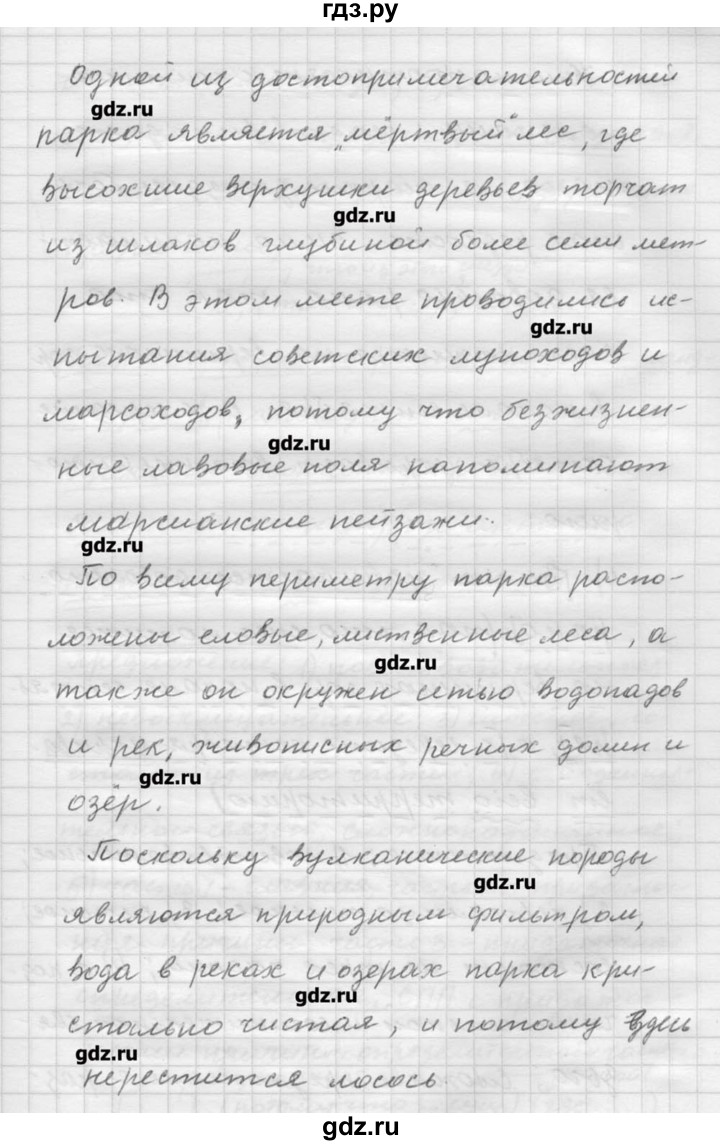 гдз.ру
Одной из достопримечательностей
gdz.ru
парка является „мёртвый" лес, где
высохшие верхушки деревьев торчат
gdz.ru
из шлаков глубиной более семи мет-
ров. В этом месте проводились ис-
gdz.ru
пытания советских луноходов и
марсоходов, потому что безжизнен-
gdz.ru
ные лавовые поля напоминают
марсианские пейзажи.
gdz.ru
По всему периметру парка распо-
ложены еловые, лиственные леса, а
gdz.ru
также он окружен сетью водопадов
и рек, живописных речных долин и
gdz.ru
озёр.
Поскольку вулканические породы
gdz.ru
являются природным фильтром,
вода в реках и озерах парка кри-
gdz.ru
стально чистая, и потому здесь
gdz.ru
нерестится лосось
gdz.ru